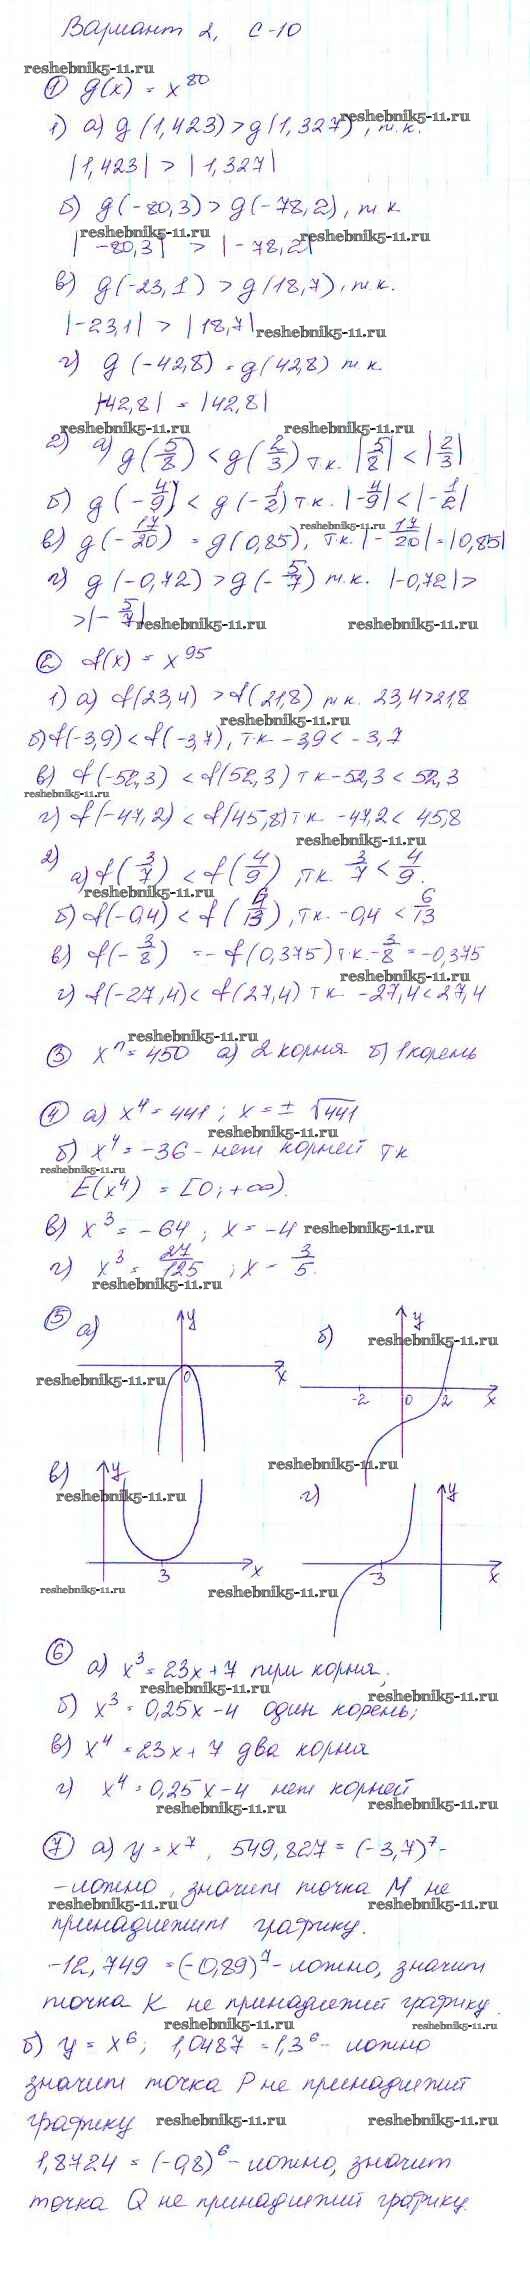 Вариант 2, С-10
reshebnik5-11.ru
① g(x) = x^80
reshebnik5-11.ru
1) а) g(1,423) > g(1,327), т.к.
|1,423| > |1,327|
б) g(-80,3) > g(-78,2), т.к
reshebnik5-11.ru
|-80,3| > |-78,2|
в) g(-23,1) > g(18,7), т.к.
|-23,1| > |18,7|
reshebnik5-11.ru
г) g(-42,8) = g(42,8) т.к.
|-42,8| = |42,8|
reshebnik5-11.ru reshebnik5-11.ru
2) а) g(5/8) < g(2/3) т.к. |5/8| < |2/3|
б) g(-4/9) < g(-1/2) т.к. |-4/9| < |-1/2|
reshebnik5-11.ru
в) g(-17/20) = g(0,85), т.к. |-17/20| = |0,85|
г) g(-0,72) > g(-5/7) т.к. |-0,72| >
> |-5/7|
reshebnik5-11.ru reshebnik5-11.ru
② f(x) = x^95
1) а) f(23,4) > f(21,8) т.к. 23,4>21,8
reshebnik5-11.ru
б) f(-3,9) < f(-3,7), т.к -3,9 < -3,7
в) f(-52,3) < f(52,3) т к -52,3 < 52,3
reshebnik5-11.ru
г) f(-47,2) < f(45,8) т к -47,2 < 45,8
2) а) f(3/7) < f(4/9), т.к. 3/7 < 4/9.
reshebnik5-11.ru
б) f(-0,4) < f(6/13), т.к. -0,4 < 6/13
в) f(-3/8) = -f(0,375) т.к. -3/8 = -0,375
reshebnik5-11.ru
г) f(-27,4) < f(27,4) т к -27,4 < 27,4
reshebnik5-11.ru
③ x^n = 450 а) 2 корня б) 1 корень
④ а) x^4 = 441; x = ± √441
reshebnik5-11.ru
б) x^4 = -36 - нет корней т к
reshebnik5-11.ru
E(x^4) = [0; +∞).
в) x^3 = -64; x = -4
reshebnik5-11.ru
г) x^3 = 27/125; x = 3/5.
reshebnik5-11.ru
⑤ а) y 0 x
б) y -2 0 2 x
reshebnik5-11.ru
reshebnik5-11.ru
reshebnik5-11.ru
в) y 3 x
reshebnik5-11.ru
г) y -3 x
reshebnik5-11.ru
reshebnik5-11.ru
⑥ а) x^3 = 23x + 7 три корня;
reshebnik5-11.ru
reshebnik5-11.ru
б) x^3 = 0,25x - 4 один корень;
в) x^4 = 23x + 7 два корня
г) x^4 = 0,25x - 4 нет корней
reshebnik5-11.ru
reshebnik5-11.ru
⑦ а) y = x^7, 549,827 = (-3,7)^7 -
- ложно, значит точка М не
reshebnik5-11.ru reshebnik5-11.ru
принадлежит графику.
-12,749 = (-0,89)^7 - ложно, значит
точка К не принадлежит графику.
б) y = x^6; 1,0487 = 1,3^6 - ложно
значит точка Р не принадлежит
графику
reshebnik5-11.ru reshebnik5-11.ru
1,8724 = (-0,8)^6 - ложно, значит
точка Q не принадлежит графику.